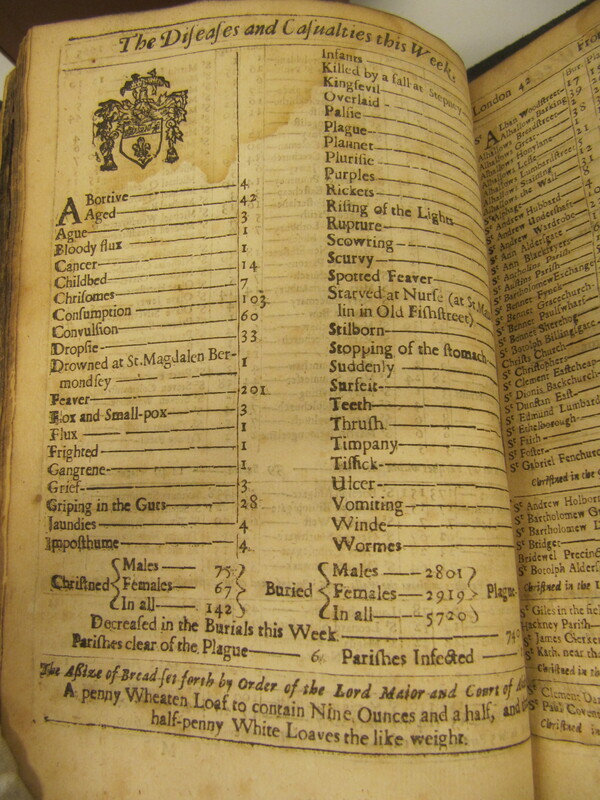 The Diſeaſes and Caſualties this Week.
ABortive 4
Aged 42
Ague 3
Bloody flux 1
Cancer 1
Childbed 14
Chriſomes 7
Conſumption 103
Convulſion 60
Dropſie 33
Drowned at St. Magdalen Ber-
mondſey 1
Feaver 201
Flox and Small-pox 3
Flux 1
Frighted 1
Gangrene 1
Grief 3
Griping in the Guts 28
Jaundies 4
Impoſthume 4
Infants
Killed by a fall at Stepney
Kingſevil
Overlaid
Palſie
Plague
Plannet
Pluriſie
Purples
Rickets
Riſing of the Lights
Rupture
Scowring
Scurvy
Spotted Feaver
Starved at Nurſe (at St.
lin in Old Fiſhſtreet)
Stilborn
Stopping of the ſtomach
Suddenly
Surfeit
Teeth
Thruſh
Timpany
Tiſſick
Ulcer
Vomiting
Winde
Wormes
Chriſtned Males 75 Females 67 In all 142
Buried Males 2801 Females 2919 In all 5720 Plague
Decreaſed in the Burials this Week
Pariſhes clear of the Plague 6 Pariſhes Infected
The Aſſize of Bread ſet forth by Order of the Lord Maior and Court of
A penny Wheaten Loaf to contain Nine Ounces and a half, and
half-penny White Loaves the like weight.
London 42
St Alban Woodſtreet
Alhallows Barking
Alhallows Breadſtreet
Alhallows Great
Alhallows Honylane
Alhallows Leſſe
Alhallows Lumbardſtreet
Alhallows Staining
Alhallows the Wall
St Alphage
St Andrew Hubbard
St Andrew Underſhaft
St Andrew Wardrobe
St Ann Alderſgate
St Ann Blackfryers
St Antholins Pariſh
St Auſtins Pariſh
St Bartholomew Exchange
St Bennet Fynck
St Bennet Gracechurch
St Bennet Paulſwharf
St Bennet Sherehog
St Botolph Billingſgate
Chriſts Church
St Chriſtophers
St Clement Eaſtcheap
St Dionis Backchurch
St Dunſtan Eaſt
St Edmund Lumbard
St Ethelborough
St Faith
St Foſter
St Gabriel Fenchurch
Chriſtned in the
St Andrew Holborn
St Bartholomew G
St Bartholomew
St Bridget
Bridewel Precinct
St Botolph Alderſ
Chriſtned in the
St Giles in the fields
Hackney Pariſh
St James Clerken
St Kath. near the
Chriſtned in the
St Clement Dan
St Paul Covent
Chriſtned in